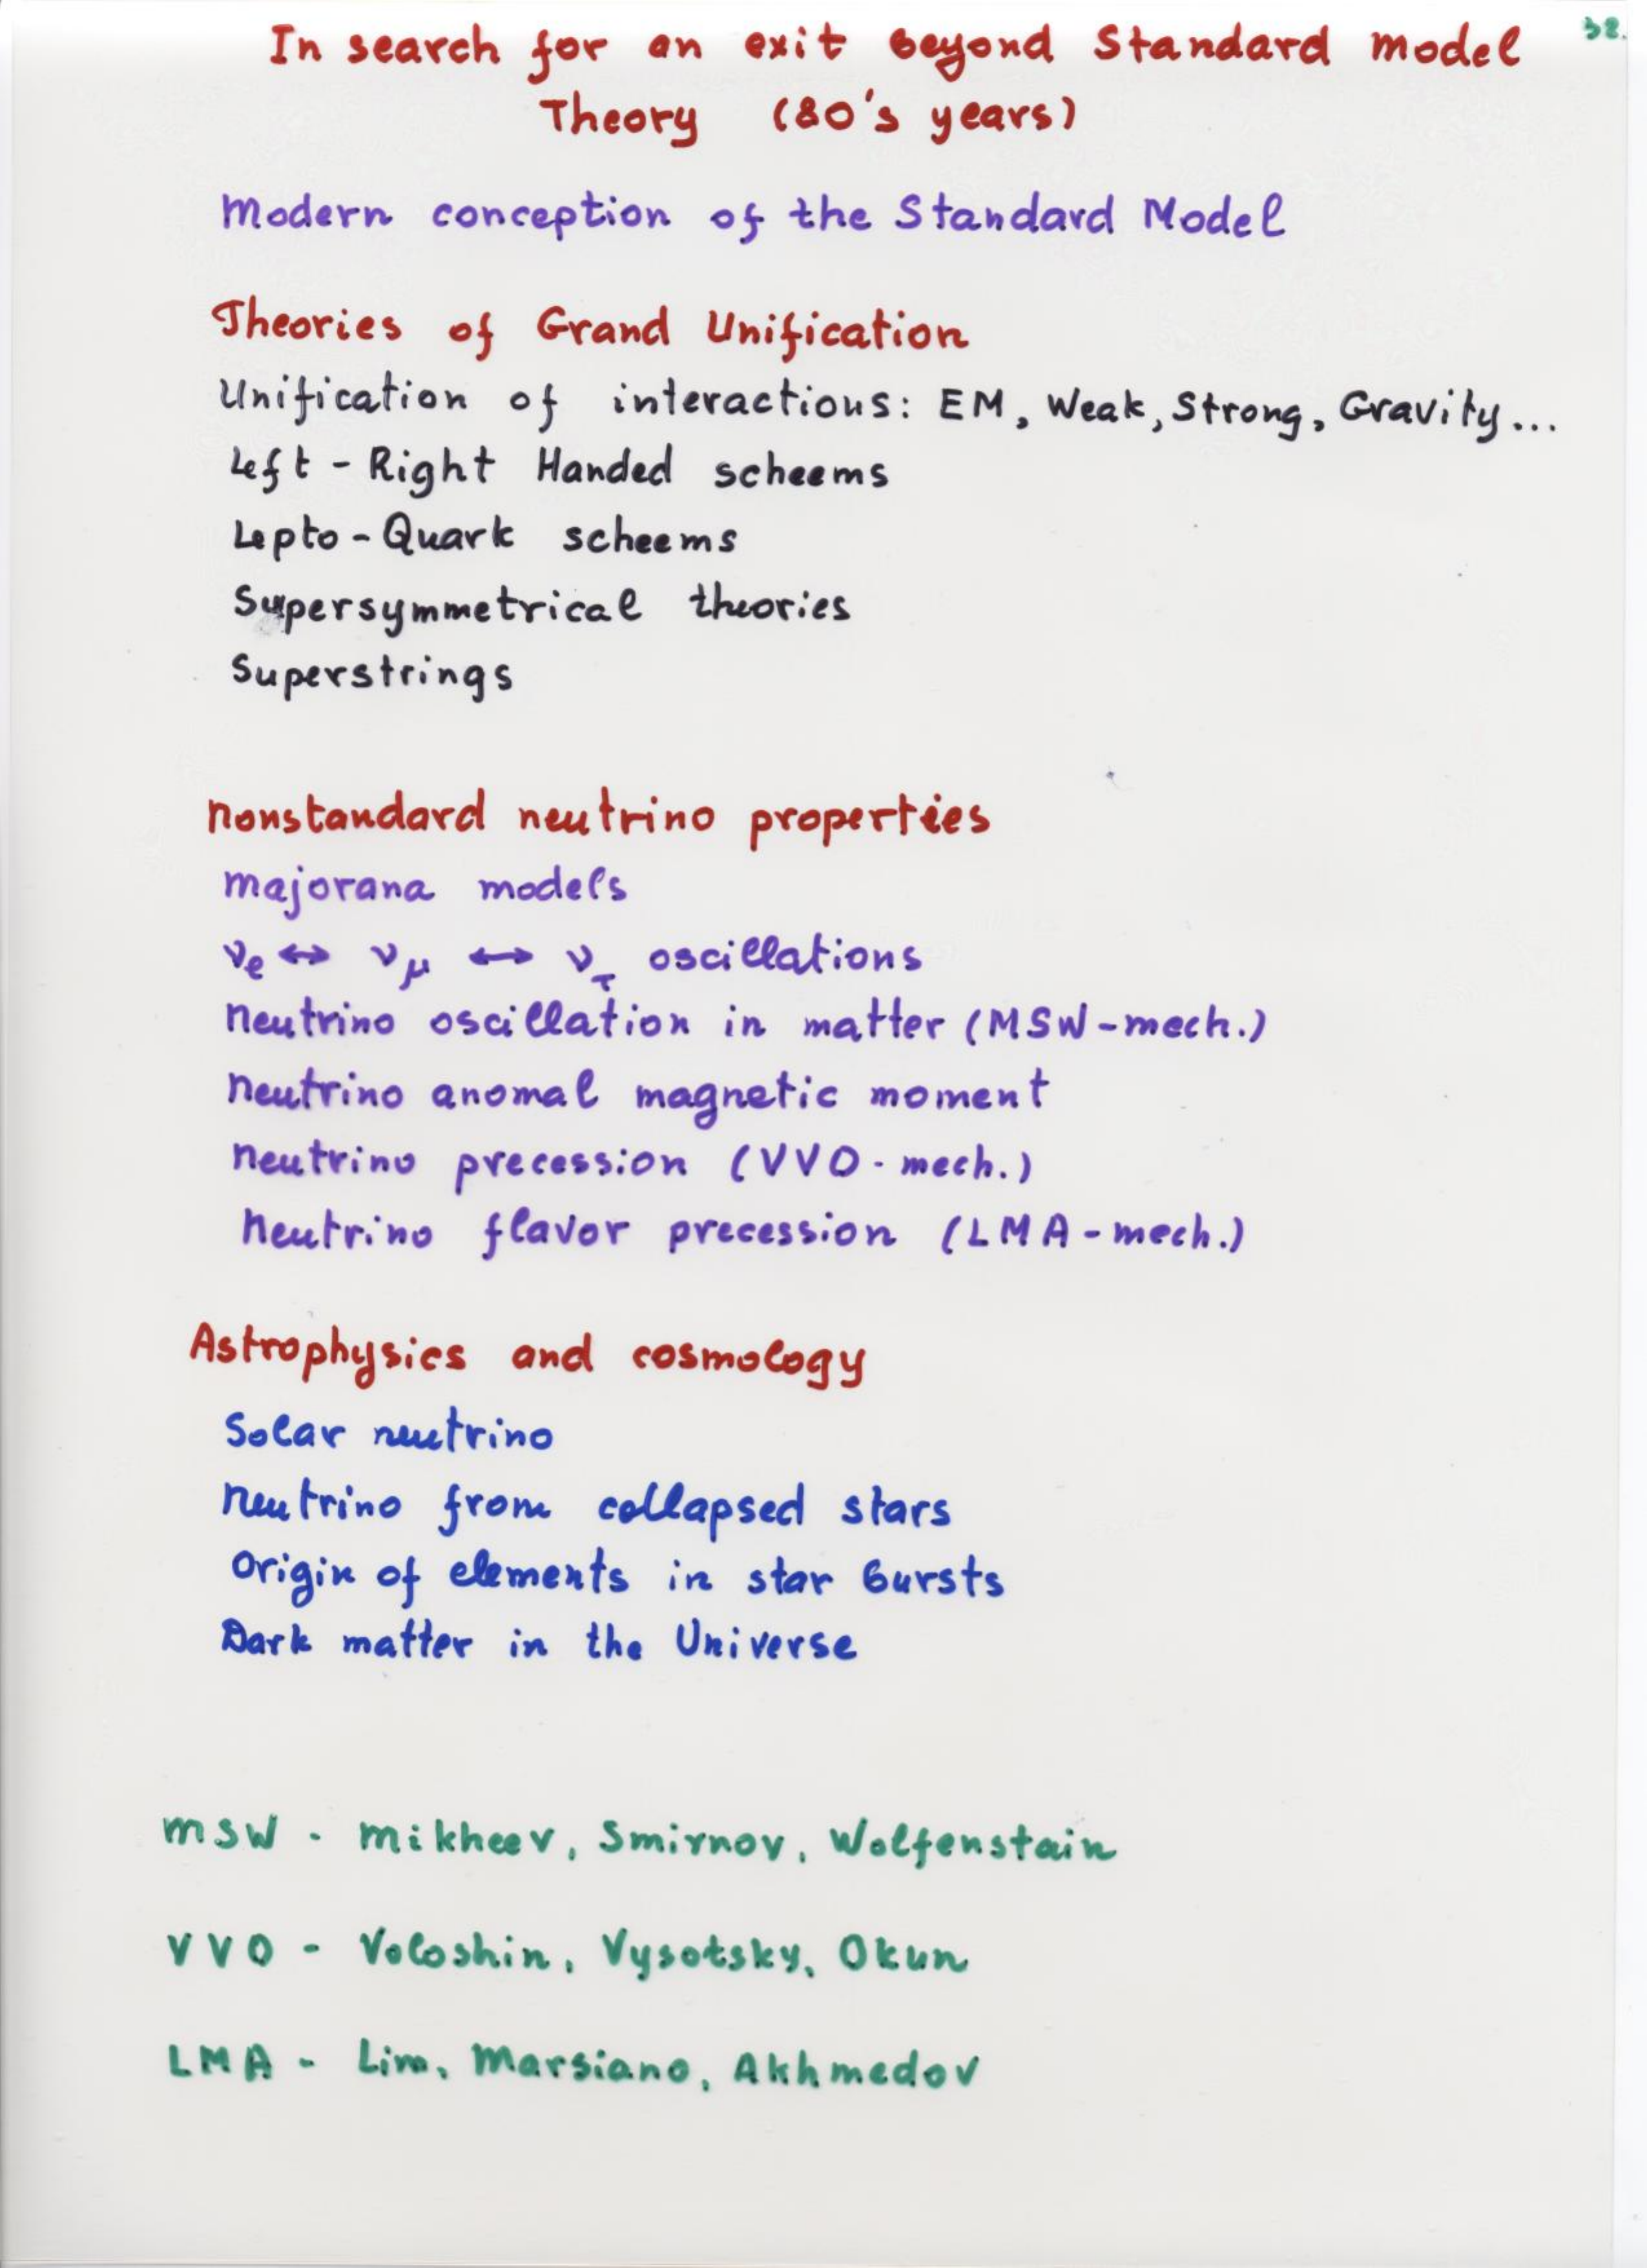 In search for an exit beyond Standard model 32.
Theory (80's years)
Modern conception of the Standard Model
Theories of Grand Unification
Unification of interactions: EM, Weak, Strong, Gravity...
Left - Right Handed scheems
Lepto - Quark scheems
Supersymmetrical theories
Superstrings
Nonstandard neutrino properties
majorana models
νe ↔ νμ ↔ ντ oscillations
Neutrino oscillation in matter (MSW - mech.)
Neutrino anomal magnetic moment
Neutrino precession (VVO - mech.)
Neutrino flavor precession (LMA - mech.)
Astrophysics and cosmology
Solar neutrino
Neutrino from collapsed stars
Origin of elements in star bursts
Dark matter in the Universe
MSW - Mikheev, Smirnov, Wolfenstain
VVO - Voloshin, Vysotsky, Okun
LMA - Lim, Marsiano, Akhmedov